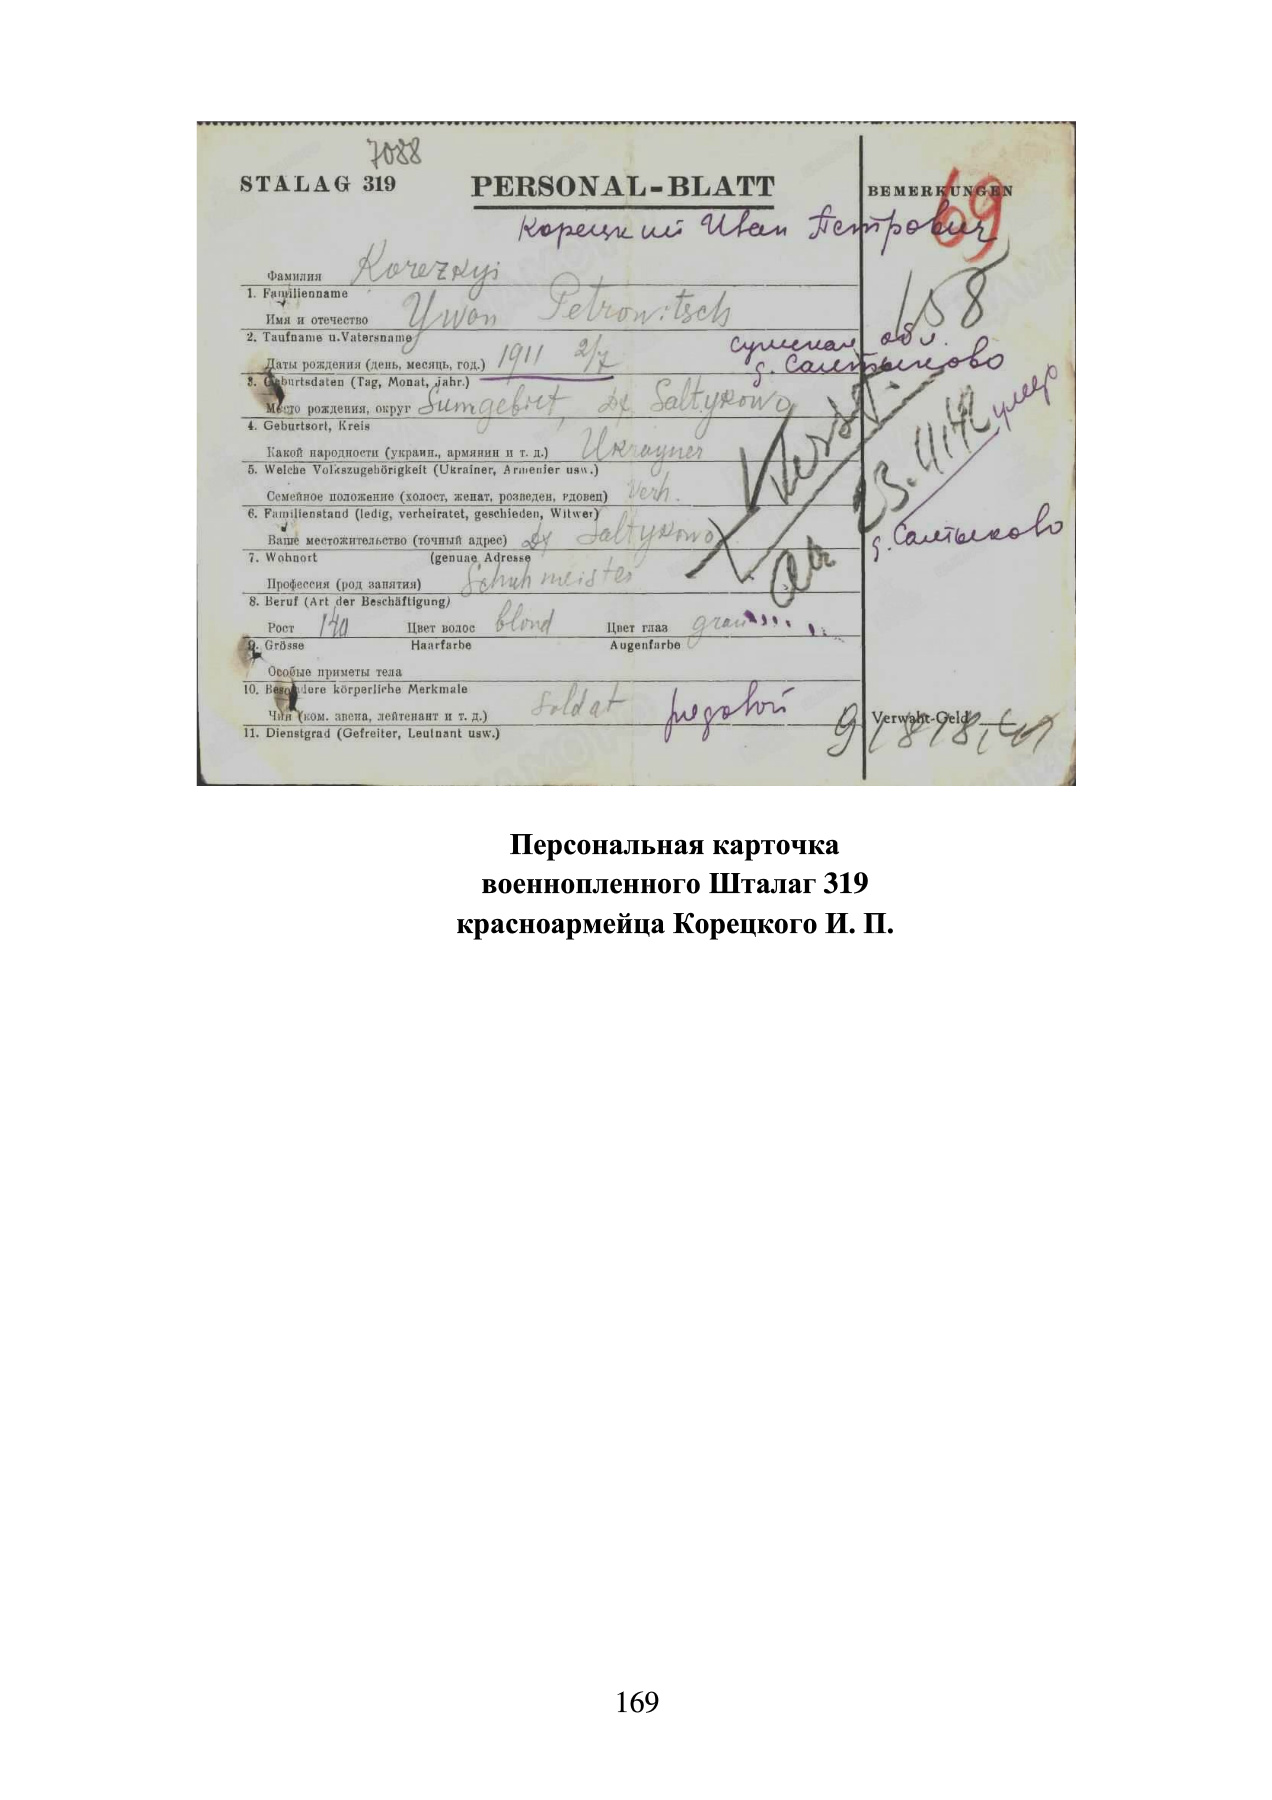 7088
STALAG 319 PERSONAL-BLATT BEMERKUNGEN
69
Корецкий Иван Петрович
Фамилия Korezkyi
1. Familienname
158
Имя и отечество Ywon Petrowitsch
2. Taufname u.Vatersname
Сумская обл.
Даты рождения (день, месяць, год.) 1911 2/7
д. Салтыково
3. Geburtsdaten (Tag, Monat, jahr.)
Место рождения, округ Sumgebiet, Df Saltykowo
4. Geburtsort, Kreis
умер
Какой народности (украин., армянин и т. д.) Ukrayner
5. Welche Volkszugehörigkeit (Ukrainer, Armenier usw.)
am 23.4.42
Семейное положение (холост, женат, розведен, рдовец) Verh.
6. Familienstand (ledig, verheiratet, geschieden, Witwer)
Ваше местожительство (точный адрес) Df Saltykowo
д. Салтыково
7. Wohnort (genuae Adresse
Профессия (род занятия) Schuhmeister
8. Beruf (Art der Beschäftigung)
Рост 170 Цвет волос blond Цвет глаз grau
9. Grösse Haarfarbe Augenfarbe
Особые приметы тела
10. Besondere körperliche Merkmale
Чин (ком. звена, лейтенант и т. д.) Soldat рядовой
Verwahr-Geld
11. Dienstgrad (Gefreiter, Leutnant usw.)
Персональная карточка
военнопленного Шталаг 319
красноармейца Корецкого И. П.
169